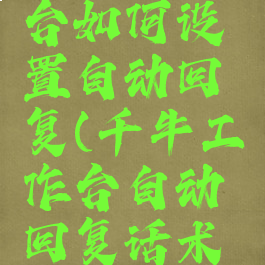 台如何设
置自动回
复(千牛工
作台自动
回复话术